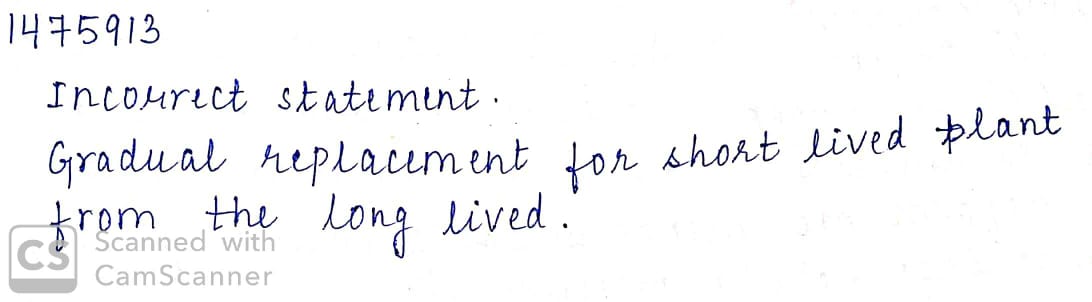 1475913
Incorrect statement.
Gradual replacement for short lived plant
from the long lived.
CS Scanned with
CamScanner